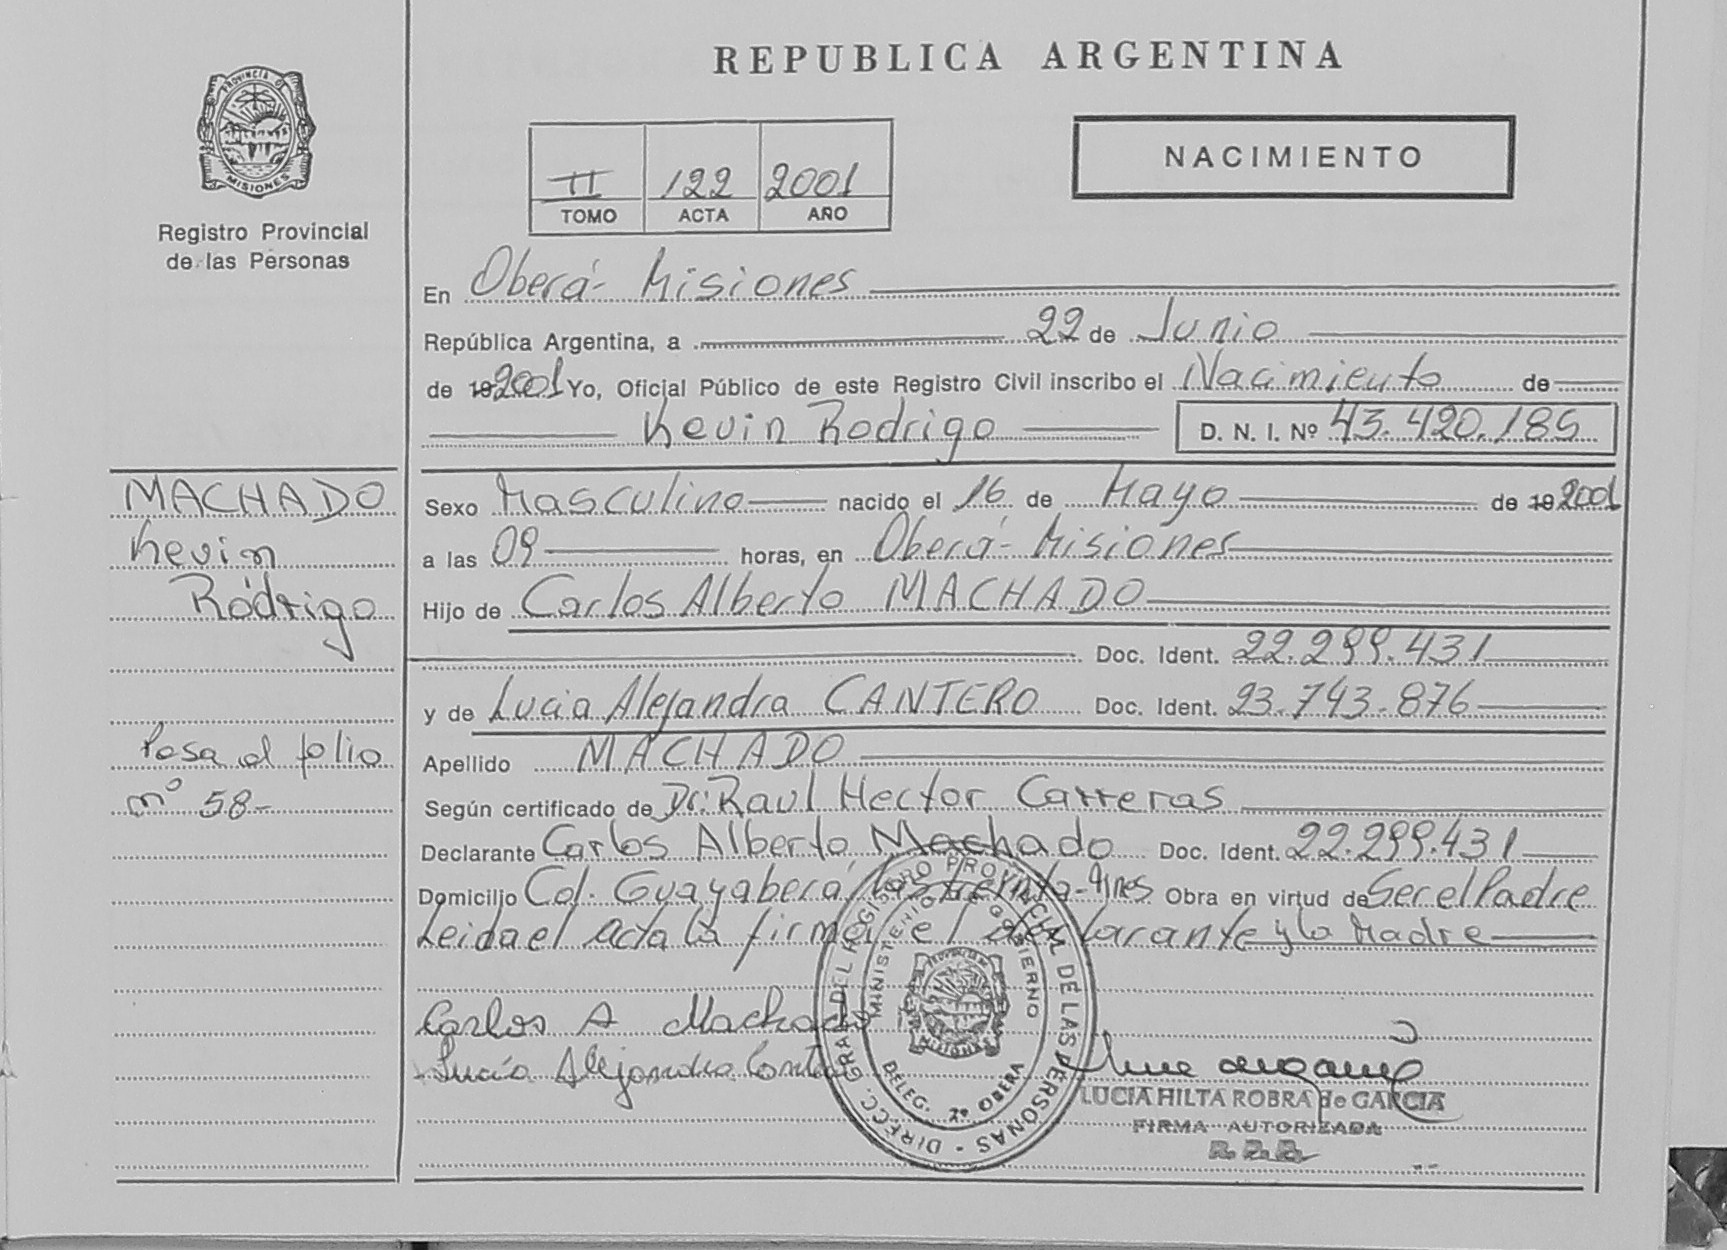 REPUBLICA ARGENTINA
PROVINCIA DE
MISIONES
Registro Provincial
de las Personas
II 122 2001
TOMO ACTA AÑO
NACIMIENTO
En Oberá - Misiones
República Argentina, a 22 de Junio
de 19 2001 Yo, Oficial Público de este Registro Civil inscribo el Nacimiento de
Kevin Rodrigo D. N. I. Nº 43.420.185
MACHADO
Kevin
Rodrigo
Pasa al folio
nº 58-
Sexo Masculino nacido el 16 de Mayo de 19 2001
a las 09 horas, en Oberá - Misiones
Hijo de Carlos Alberto MACHADO
Doc. Ident. 22.299.431
y de Lucia Alejandra CANTERO Doc. Ident. 23.743.876
Apellido MACHADO
Según certificado de Dr: Raul Hector Carreras
Declarante Carlos Alberto Machado Doc. Ident. 22.299.431
Domicilio Col. Guayabera, Obra en virtud de Ser el Padre
Leida el Acta la firman el declarante y la Madre
Carlos A Machado
Lucía Alejandra
DIRECC. GRAL. DEL REGISTRO PROVINCIAL DE LAS PERSONAS -
MINISTERIO DE GOBIERNO
MISIONES
DELEG. 2º OBERA
LUCIA HILTA ROBRA de GARCIA
FIRMA AUTORIZADA
R.P.P.